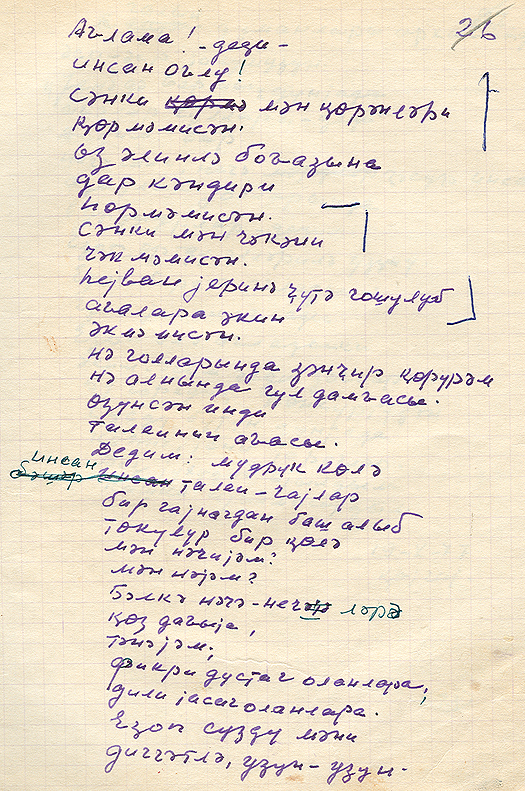 26
Ағлама! - деди -
инсан оғлу!
сәнки мән ҝөрәнләри
ҝөрмәмисән.
өз әлинлә боғазына
дар кәндири
һөрмәмисән.
Сәнки мән чәкәни
чәкмәмисән.
һејван јеринә ҹүтә гошулуб
ағалара әкин
әкмәмисән.
нә голларында зәнҹир ҝөрүрәм
нә алнында гул дамғасы.
өзүнсән инди
талеинин ағасы.
Дедим: мүдрик көлә
инсан талеи - чајлар
бир гајнағдан баш алыб
төкүлүр бир ҝөлә
мән нәчијәм?
мән нәјәм?
Бәлкә нечә-нечәләрә
ҝөз дағыја,
тәнәјәм;
фикри дустағ оланлара,
дили јасағ оланлара.
Езоп сүздү мәни
диггәтлә, узун-узун.